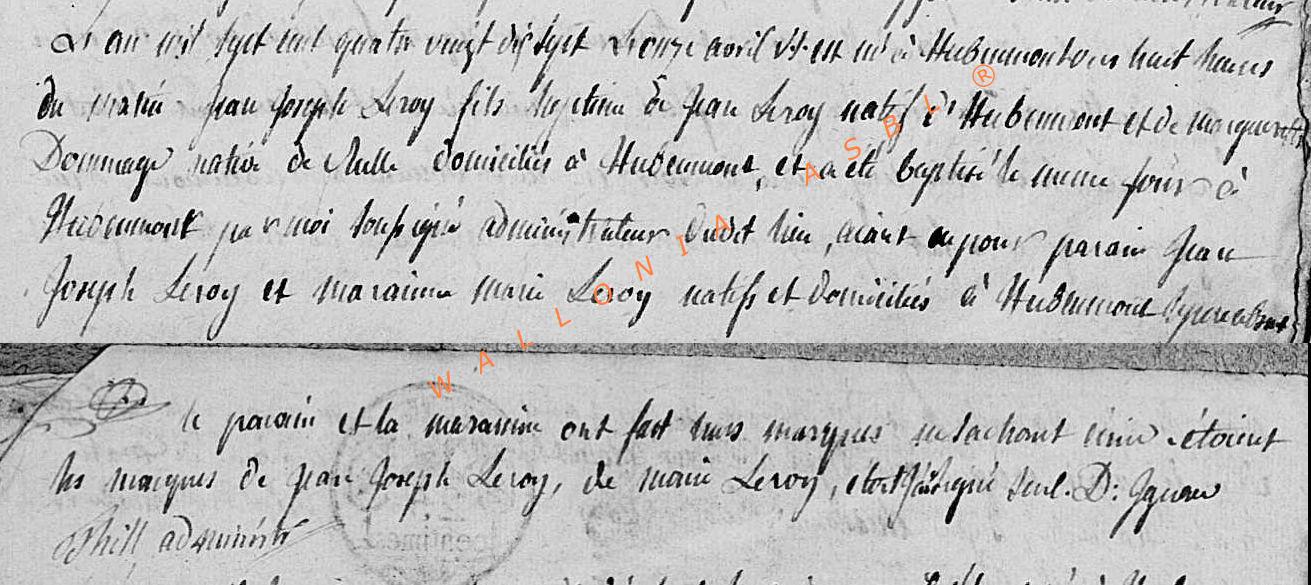 L'an mil sept cent quatre vingt dix sept le onze avril v.st. est né à Hubermont vers huit heures
du matin jean joseph Leroy fils legitime de Jean Leroy natif d'Hubermont et de marguerite
Dommage native de domiciliés à Hubermont, et a été baptisé le meme jour à
Hubermont par moi soussigné administrateur dudit lieu, aiant eu pour parain Jean
Joseph Leroy et maraine marie Leroy natifs et domiciliés à Hubermont
le parain et la maraine ont fait leurs marques ne sachant écrire. étoient
les marques de jean Joseph Leroy, de marie Leroy, étoit soussigné seul. D:
Thill administr
WALLONIA ASBL ®